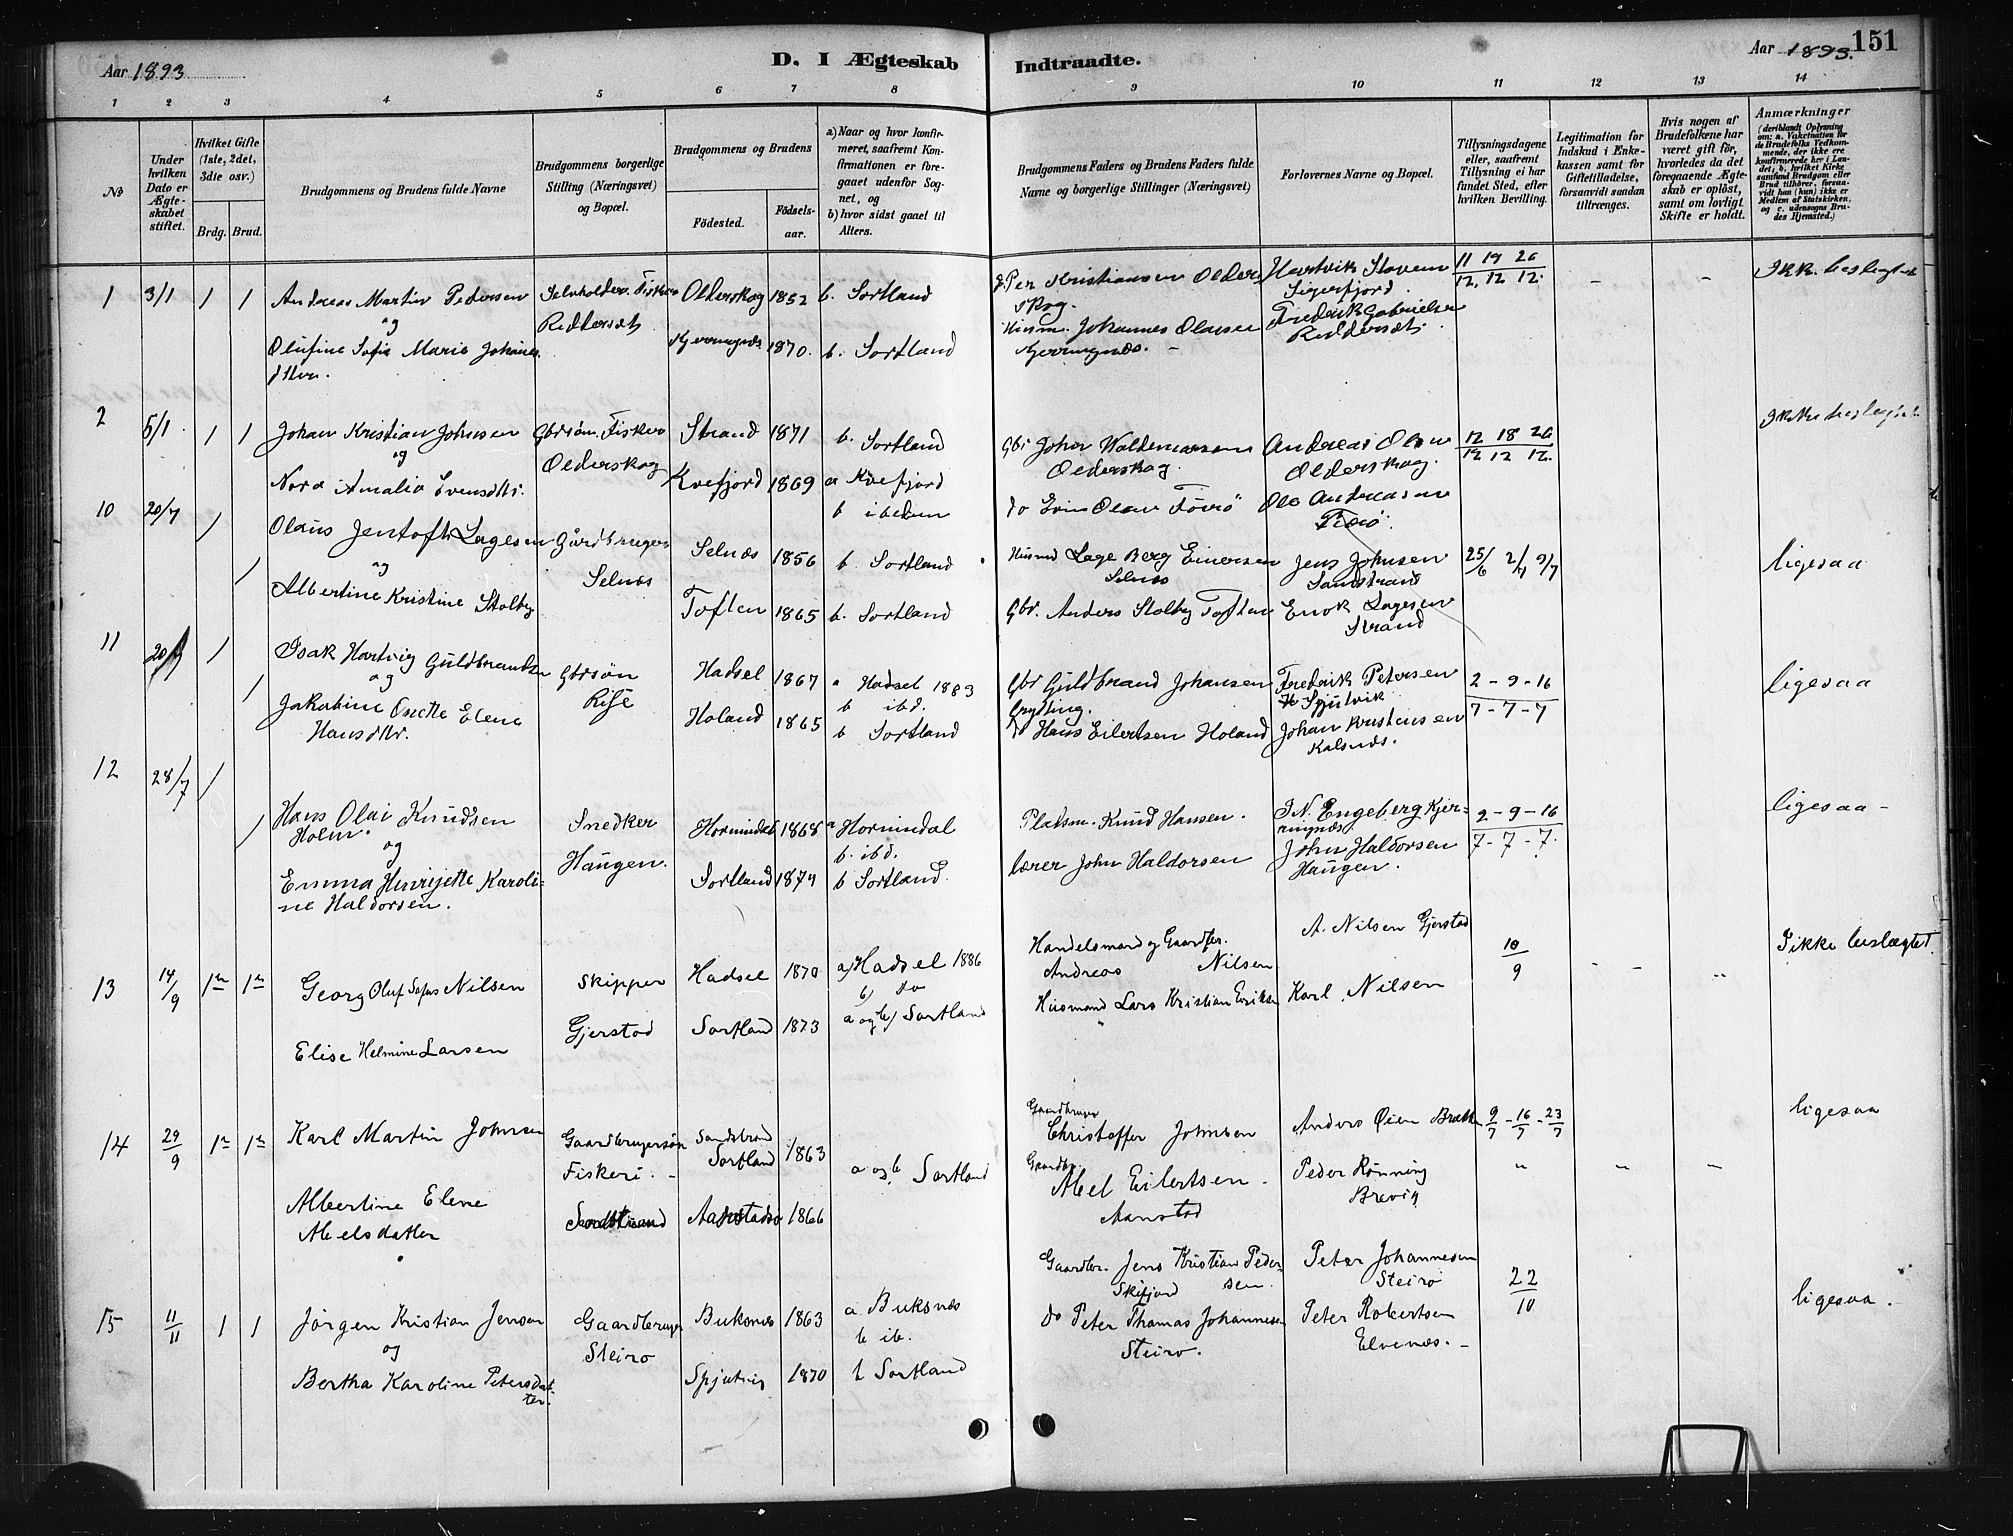 Aar 1893.
D. I Ægteskab
Indtraadte.
Aar 1893.
151
1 2 3 4 5 6 7 8 9 10 11 12 13 14
No
Under hvilken Dato er Ægteskabet stiftet.
Hvilket Gifte (1ste, 2det, 3die osv.)
Brdg. Brud.
Brudgommens og Brudens fulde Navne
Brudgommens borgerlige Stilling (Næringsvei) og Bopæl.
Brudgommens og Brudens
Fødested.
Fødselsaar.
a) Naar og hvor konfirmeret, saafremt Konfirmationen er foregaaet udenfor Sognet, og
b) hvor sidst gaaet til Alters.
Brudgommens Faders og Brudens Faders fulde Navne og borgerlige Stillinger (Næringsvei)
Forlovernes Navne og Bopæl.
Tillysningsdagene eller, saafremt Tillysning ei har fundet Sted, efter hvilken Bevilling.
Legitimation for Indskud i Enkekassen samt for Giftetilladelse, forsaavidt saadan tiltrænges.
Hvis nogen af Brudefolkene har været gift før, hvorledes da det foregaaende Ægteskab er opløst, samt om lovligt Skifte er holdt.
Anmærkninger
(deriblandt Oplysning om: a. Vakcination for de Brudefolks Vedkommende, der ikke ere konfirmerede her i Landet; b. hvilket Kirkesamfund Brudgom eller Brud tilhører, forsaavidt han (hun) ikke er Medlem af Statskirken, og c. udensogns Brudes Hjemsted.)
1 3/1 1 1 Andreas Martin Pedersen Selvholder. Fisker Olderskog 1852 b. Sortland Per Kristiansen Olderskog. Hartvik Stovem Sigerfjord. 11 19 26 / 12. 12 12. - - Ikk. beslegtet
og Reddersæt
Olufine Sofie Marie Johannesdtter. Kjerringnes 1870. b. Sortland Husm. Johannes Olausen Kjerringnæs. - Frederik Gabrielsen Reddersæt.
2 5/1. 1 1 Johan Kristian Johnsen Gbrsøn. Fisker Strand 1871 b. Sortland Gbr John Waldemarsen Olderskog. Andreas Olsen Olderskog. 12 18 26 / 12 12 12. Ikke beslegtet.
og Olderskog
Nora Amalia Evensdtr. Kvefjord 1869 a Kvefjord b ibidem do Even Olsen Ole Andreasen
10 20/7 1 1 Olaüs Jentoft Lagesen Gårdbruger Selnæs 1856 b. Sortland Husmd Lage Berg Einersen Selnæs Jens Johnsen Sandstrand 25/6 2/7 9/7 ligesaa
og Selnæs
Albertine Kristine Stolby Toften 1865 b. Sortland Gbr. Anders Stolby Toften Enok Lagesen Strand
11 20/7 1 1 Isak Hartvig Güldbrandsen Gbrsøn Hadsel 1867 a Hadsel 1883 b ibd. Gbr Güldbrand Johansen Frydling. Frederik Petersen Spjutvik 2 - 9 - 16 / 7 - 7 - 7 ligesaa
og Rise
Jakobine Anette Elene Hansdtr. Holand 1865 b Sortland do Hans Eilertsen Holand Johan Kristensen Kalsnæs.
12 28/7 1 1 Hans Olai Knüdsen Holm. Snedker Hornindal 1868 a Hornindal b. ibd. Pladsm. Knud Hansen. I. N. Engeberg Kjerringnæs 2 - 9 - 16 / 7 - 7 - 7. ligesaa -
og Haügen.
Emma Henrijette Karoline Haldorsen. Sortland 1874 b Sortland. lærer John Haldorsen John Haldorsen Haügen.
13 14/9 1ste 1ste Georg Oluf Sofus Nilsen Skipper Hadsel 1870 a) Hadsel 1886 b) do Handelsmand og Gaardbr. Andreas Nilsen A. Nilsen Gjerstad 10/9 - - " I ikke beslægtet.
Elise Helmine Larsen Gjerstad Sortland 1873 a og b) Sortland Husmand Lars Kristian Eriksen Karl Nilsen
14 29/9 1ste 1ste Karl Martin Johnsen Gaardbrugersøn Fiskeri. - Sandstrand Sortland 1863 a og b. Sortland Gaardbruger Christoffer Johnsen Anders Øien Brække 9/7 - 16/7 - 23/7 ligesaa
Albertine Elene Abelsdatter Sandstrand Aanstadso 1866 Gaardbr Abel Eilertsen. Aanstad Peder Rønning Brevig " " -
15 11/11 1 1 Jørgen Kristian Jensen Gaardbruger Buksnæs 1863 a Buksnæs b ib. Gaardbr. Jens Kristian Pedersen. Skifjord Peter Johannesen Steirø 22/10 ligesaa.
og Steirø
Bertha Karoline Petersdatter. Spjutvig 1870 b Sortland do Peter Thomas Johannesen Steirø. Peter Robertsen Elvenæs. -